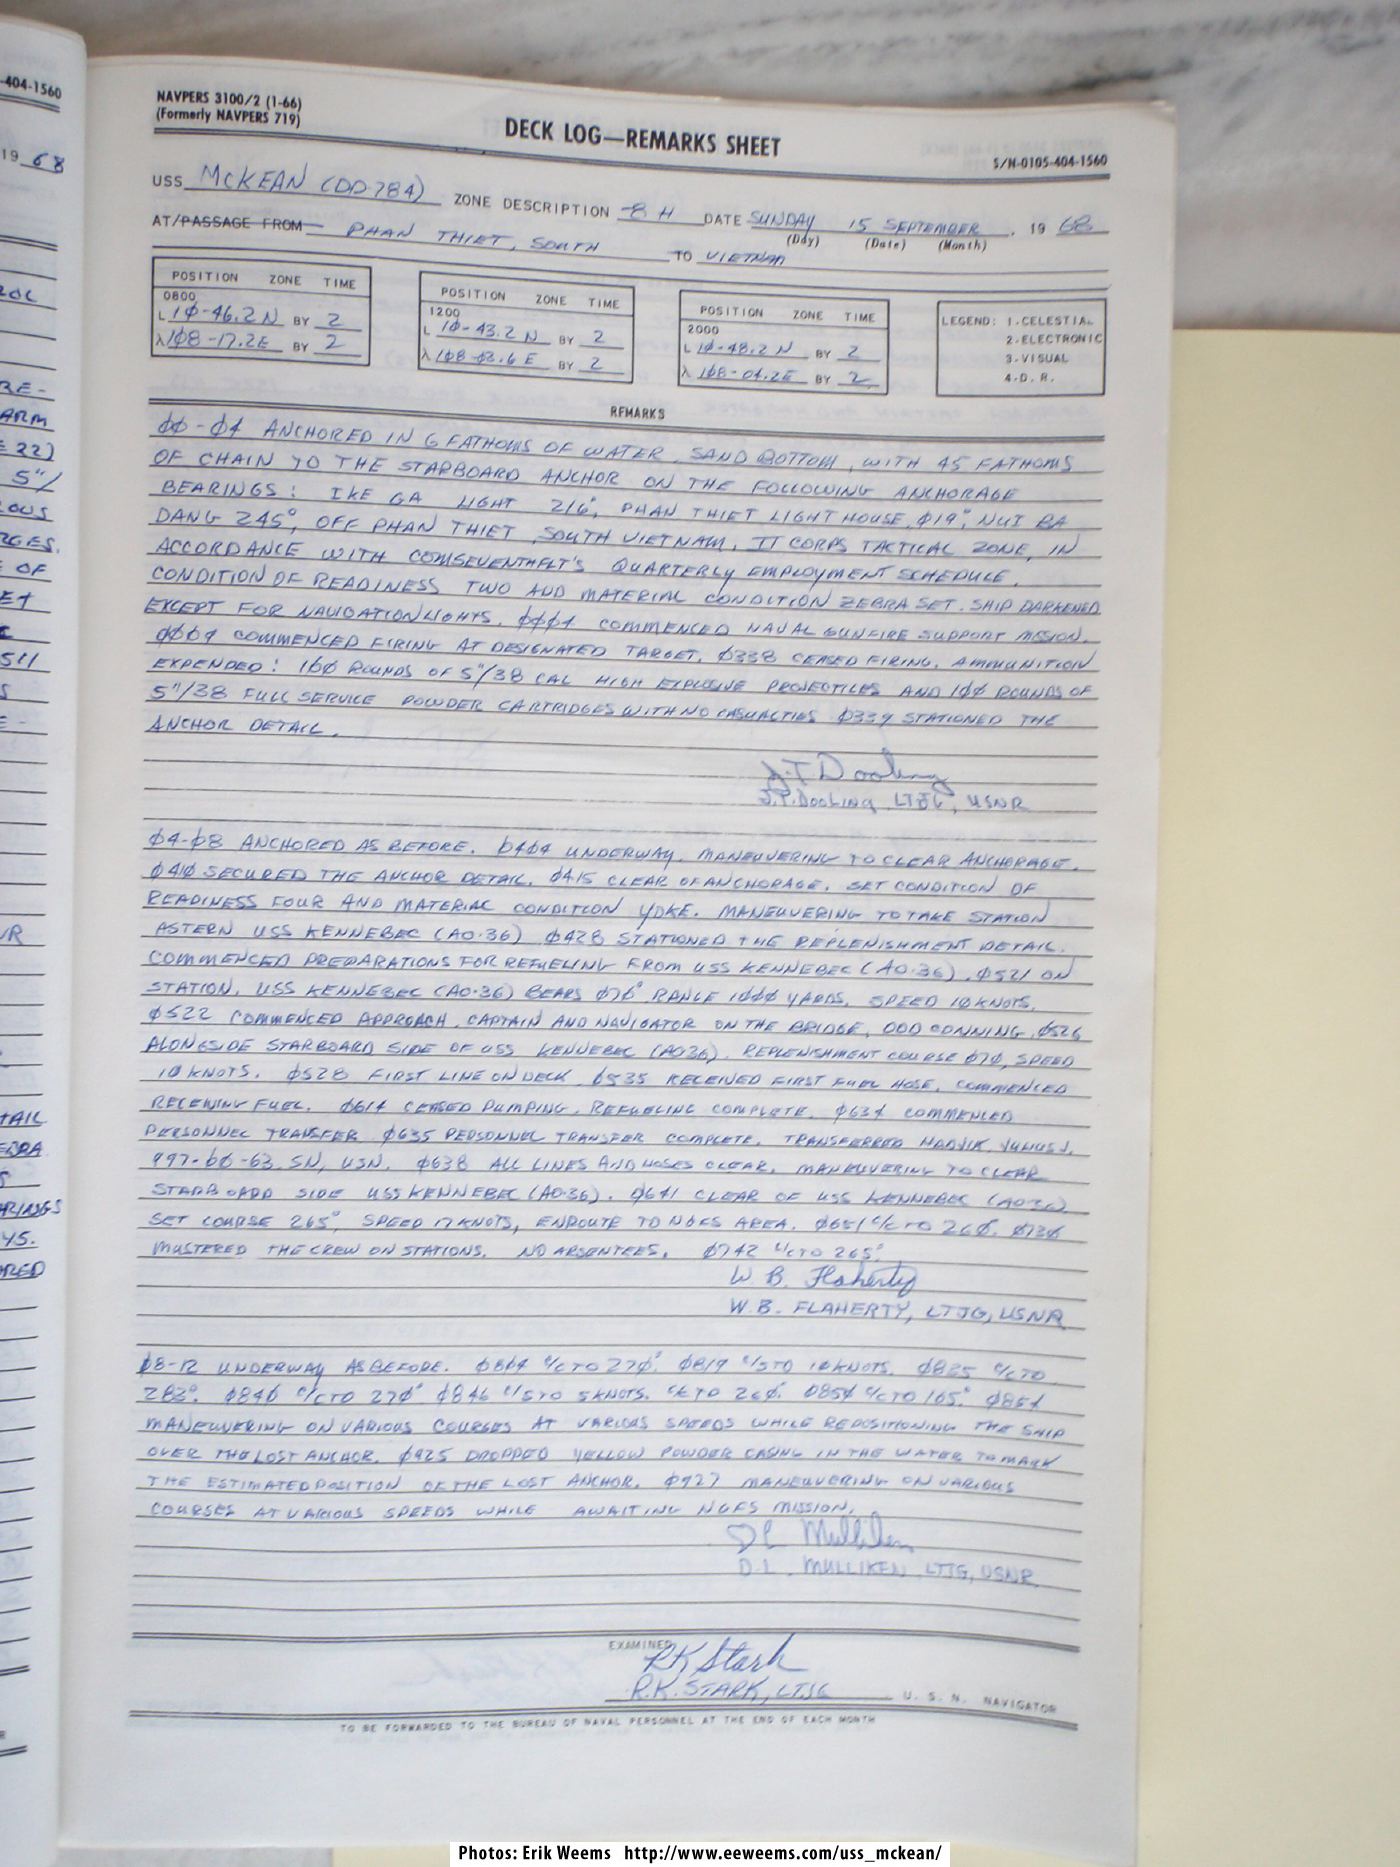 -404-1560
19 68
NAVPERS 3100/2 (1-66)
(Formerly NAVPERS 719)
DECK LOG—REMARKS SHEET
S/N-0105-404-1560
USS McKEAN (DD-784) ZONE DESCRIPTION -8 H DATE SUNDAY 15 SEPTEMBER, 19 68
(Day) (Date) (Month)
AT/PASSAGE FROM PHAN THIET, SOUTH TO VIETNAM
POSITION ZONE TIME
0800
L 1Ø-46.2 N BY 2
λ 1Ø8-17.2E BY 2
POSITION ZONE TIME
1200
L 1Ø-43.2 N BY 2
λ 1Ø8-Ø3.6 E BY 2
POSITION ZONE TIME
2000
L 1Ø-48.2 N BY 2
λ 1Ø8-04.2E BY 2
LEGEND: 1-CELESTIAL
2-ELECTRONIC
3-VISUAL
4-D. R.
REMARKS
ØØ-Ø4 ANCHORED IN 6 FATHOMS OF WATER, SAND BOTTOM, WITH 45 FATHOMS
OF CHAIN TO THE STARBOARD ANCHOR ON THE FOLLOWING ANCHORAGE
BEARINGS: IKE GA LIGHT 216°, PHAN THIET LIGHT HOUSE, Ø19°, NUI BA
DANG 245°, OFF PHAN THIET, SOUTH VIETNAM, II CORPS TACTICAL ZONE, IN
ACCORDANCE WITH COMSEVENTHFLT'S QUARTERLY EMPLOYMENT SCHEDULE.
CONDITION OF READINESS TWO AND MATERIAL CONDITION ZEBRA SET. SHIP DARKENED
EXCEPT FOR NAVIGATION LIGHTS. ØØØ4 COMMENCED NAVAL GUNFIRE SUPPORT MISSION.
ØØØ9 COMMENCED FIRING AT DESIGNATED TARGET. Ø338 CEASED FIRING. AMMUNITION
EXPENDED: 1ØØ ROUNDS OF 5"/38 CAL HIGH EXPLOSIVE PROJECTILES AND 1ØØ ROUNDS OF
5"/38 FULL SERVICE POWDER CARTRIDGES WITH NO CASUALTIES Ø339 STATIONED THE
ANCHOR DETAIL.
J.T. Dooling
J.T. Dooling, LTJG, USNR
Ø4-Ø8 ANCHORED AS BEFORE. Ø4Ø4 UNDERWAY. MANEUVERING TO CLEAR ANCHORAGE.
Ø41Ø SECURED THE ANCHOR DETAIL. Ø415 CLEAR OF ANCHORAGE. SET CONDITION OF
READINESS FOUR AND MATERIAL CONDITION YOKE. MANEUVERING TO TAKE STATION
ASTERN USS KENNEBEC (AO-36) Ø428 STATIONED THE REPLENISHMENT DETAIL.
COMMENCED PREPARATIONS FOR REFUELING FROM USS KENNEBEC (AO-36). Ø521 ON
STATION. USS KENNEBEC (AO-36) BEARS Ø7Ø° RANGE 1ØØØ YARDS, SPEED 1Ø KNOTS.
Ø522 COMMENCED APPROACH. CAPTAIN AND NAVIGATOR ON THE BRIDGE, OOD CONNING. Ø526
ALONGSIDE STARBOARD SIDE OF USS KENNEBEC (AO36). REPLENISHMENT COURSE Ø7Ø, SPEED
1Ø KNOTS. Ø528 FIRST LINE ON DECK Ø535 RECEIVED FIRST FUEL HOSE. COMMENCED
RECEIVING FUEL. Ø614 CEASED PUMPING. REFUELING COMPLETE. Ø634 COMMENCED
PERSONNEL TRANSFER Ø635 PERSONNEL TRANSFER COMPLETE. TRANSFERRED
SN, USN. Ø638 ALL LINES AND HOSES CLEAR. MANEUVERING TO CLEAR
STARBOARD SIDE USS KENNEBEC (AO-36). Ø641 CLEAR OF USS KENNEBEC (AO-36)
SET COURSE 265°, SPEED 17 KNOTS, ENROUTE TO NGFS AREA. Ø651 C/C TO 26Ø. Ø73Ø
MUSTERED THE CREW ON STATIONS. NO ABSENTEES. Ø742 C/C TO 265°.
W. B. Flaherty
W.B. FLAHERTY, LTJG, USNR
Ø8-12 UNDERWAY AS BEFORE. Ø8Ø4 C/C TO 27Ø°. Ø819 C/S TO 1Ø KNOTS. Ø835 C/C TO
283°. Ø84Ø C/C TO 27Ø° Ø846 C/S TO 5 KNOTS. C/C TO 26Ø°. Ø85Ø C/C TO 165° Ø854
MANEUVERING ON VARIOUS COURSES AT VARIOUS SPEEDS WHILE REPOSITIONING THE SHIP
OVER THE LOST ANCHOR. Ø925 DROPPED YELLOW POWDER CASING IN THE WATER TO MARK
THE ESTIMATED POSITION OF THE LOST ANCHOR. Ø927 MANEUVERING ON VARIOUS
COURSES AT VARIOUS SPEEDS WHILE AWAITING NGFS MISSION.
D L Mulliken
D.L. MULLIKEN, LTJG, USNR
EXAMINED
RK Stark
R.K. STARK, LTJG U. S. N. NAVIGATOR
TO BE FORWARDED TO THE BUREAU OF NAVAL PERSONNEL AT THE END OF EACH MONTH
Photos: Erik Weems http://www.eeweems.com/uss_mckean/